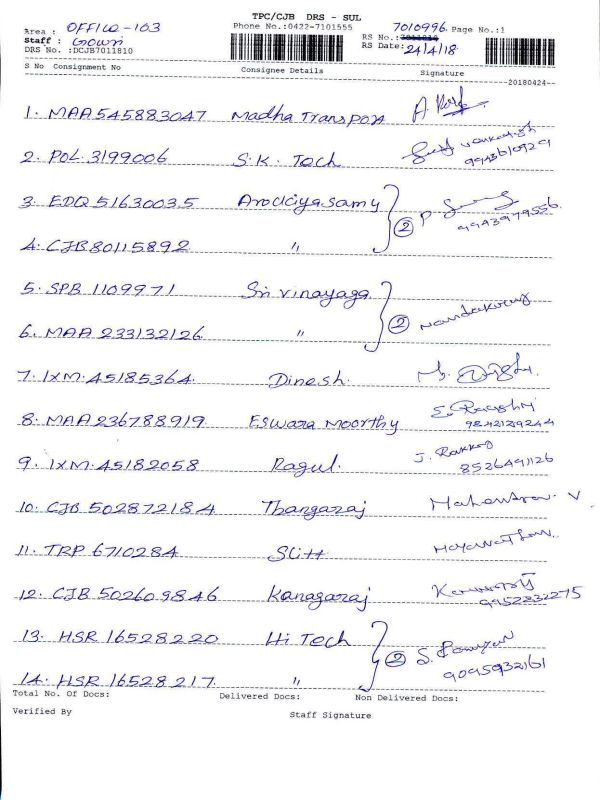 TPC/CJB DRS - SUL
Area : OFFICE-103 Phone No.:0422-7101555 7010996 Page No.:1
Staff : Gowri RS No.:
DRS No. :DCJB7011810 RS Date: 24/4/18
S No Consignment No Consignee Details Signature
20180424
1. MAA 545883047 Madha Transport A
2. POL 3199006 S.K. Tech
3. EDQ 51630035 Arociyasamy 2 P
9943979556
4. CJB 80115892 "
5. SPB 1109971 Sri vinayaga 2 Nandakumar
6. MAA 233132126 "
7. IXM. 45185364 Dinesh. M.
8. MAA 236788919 Eswara Moorthy E.
9. IXM. 45182058 Ragul. J.
8526491126
10. CJB 502872184 Thangaraj Mahendran V
11. TRP 6710284
12. CJB 502609846 Kanagaraj
9952832275
13. HSR 16528220 Hi Tech 2 S.
9095932161
14. HSR 16528217. "
Total No. Of Docs: Delivered Docs: Non Delivered Docs:
Verified By Staff Signature